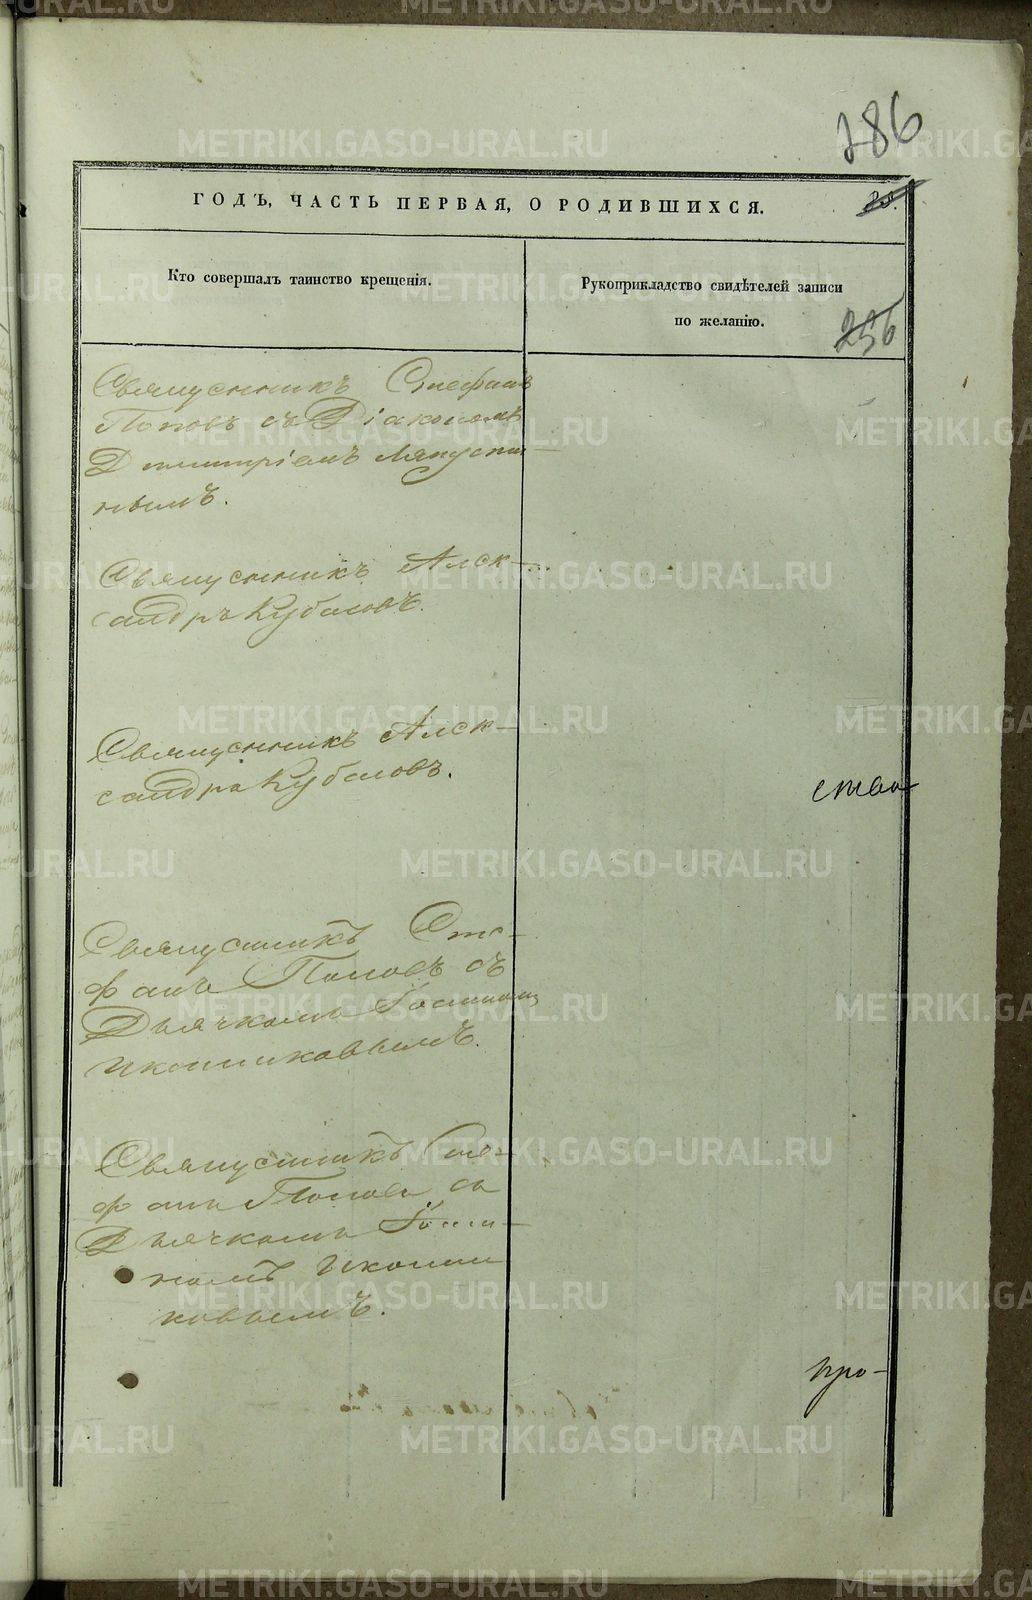 286
ГОДЪ, ЧАСТЬ ПЕРВАЯ, О РОДИВШИХСЯ.
Кто совершалъ таинство крещенія.
Рукоприкладство свидѣтелей записи
по желанію.
256
Священникъ Стефанъ
Поповъ съ Діакономъ
Димитріемъ Ляпусти-
нымъ.
Священникъ Алек-
сандръ Кубасовъ.
Священникъ Алек-
сандръ Кубасовъ.
ства
Священникъ Сте-
фанъ Поповъ съ
Дьячкомъ
Иконниковымъ.
Священникъ Сте-
фанъ Поповъ съ
Дьячкомъ
Иконни
ковымъ.
про-
METRIKI.GASO-URAL.RU